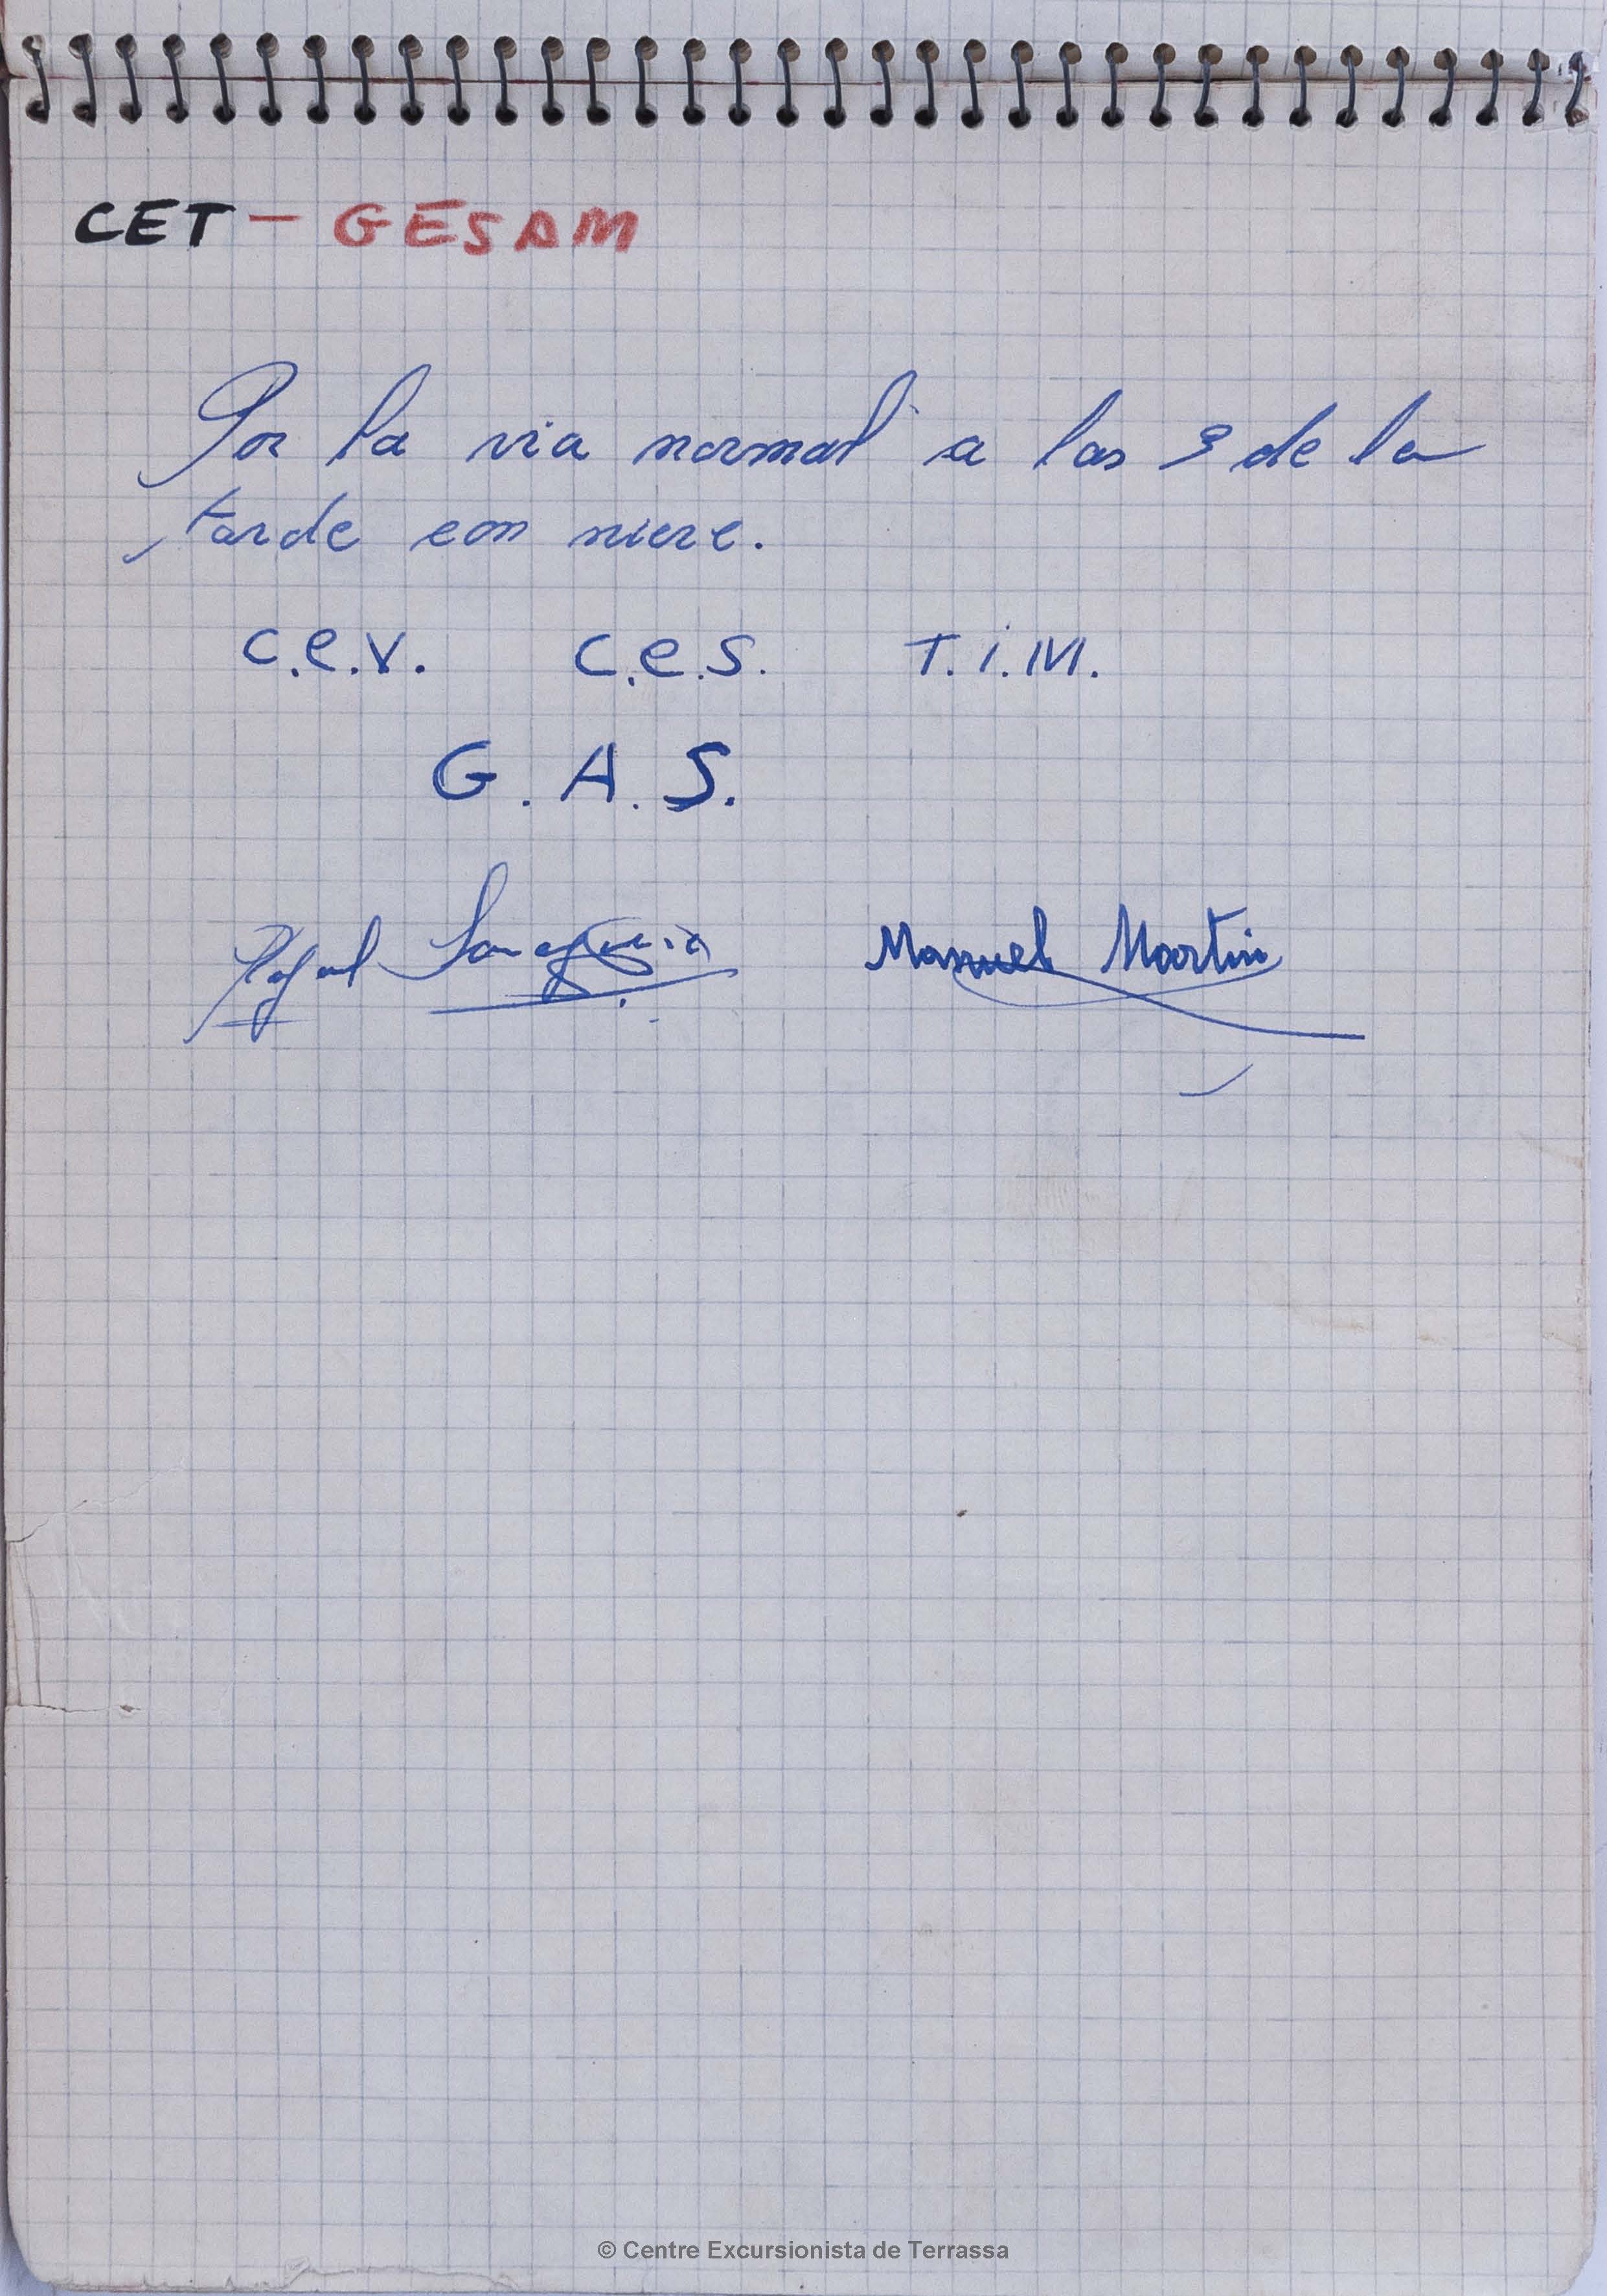 CET - GESAM
Por la via normal a las 3 de la
tarde con nieve.
C.e.V. C.e.S. T.i.M.
G.A.S.
Rafael Manuel Martin
© Centre Excursionista de Terrassa